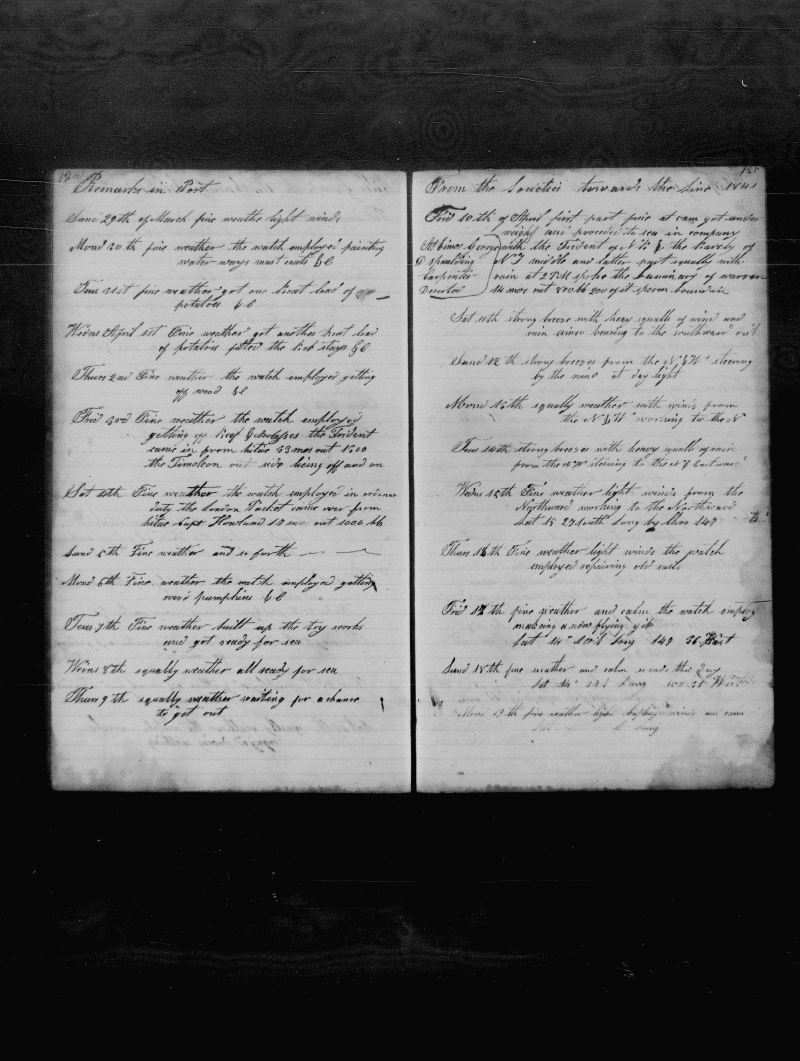 Remarks in Port
Sund 29th of March fine weather light winds
Mond 30th fine weather the watch employed painting
water ways mast coats &c
Tues 31st fine weather got one boat load of
potatoes &c
Wedns April 1st Fine weather got another boat load
of potatoes fitted the bob stays &c
Thurs 2nd Fine weather the watch employed getting
off wood &c
Frid 3rd Fine weather the watch employed
getting off Beef & molasses the Trident
came in from hilo 33 mos out 1300
the Timoleon out side lying off and on
Sat 4th Fine weather the watch employed in
duty the London Packet came over from
Capt Howland 19 mo out 1000 bb
Sund 5th Fine weather and so forth
Mond 6th Fine weather the watch employed getting
wood pumpkins &c
Tues 7th Fine weather built up the try works
and got ready for sea
Wedns 8th squally weather all ready for sea
Thurs 9th squally weather waiting for a chance
to get out
From the Societies towards the Line 1841
Frid 10th of April first part fine at 10 am got under
weigh and proceeded to sea in company
with the Trident of N B & the of
middle and latter part squally with
rain at 2 PM spoke the of Warren
14 mos out 800 bb 200 of it sperm bound in
George
Spaulding
Carpenter
Sat 11th strong breeze with heavy squalls of wind and
rain bearing to the southward
Sund 12th strong breezes from the steering
by the wind at day light
Mond 13th squally weather with winds from
the working to the N
Tues 14th strong breezes with heavy squalls of rain
from the steering to the Eastward
Wedns 15th Fine weather light winds from the
Northward working to the Northward
Lat 15 27 South Long by Chro 149
Thurs 16th Fine weather light winds the watch
employed repairing old sails
Frid 17th fine weather and calm the watch employ
making a new flying gib
Lat 14° Long 149 36 West
Sund 18th fine weather and calm so ends this day
Lat 14° Long West
Mond 19th fine weather light winds and
Long